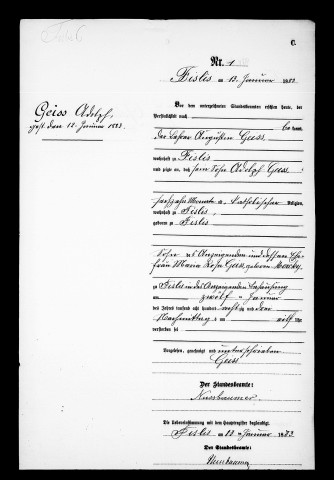 C.
Nr. 1
Fislis am 13. Januar 1883
Geiss Adolph,
gest. den 12. Januar 1883.
Vor dem unterzeichneten Standesbeamten erschien heute, der
Persönlichkeit nach
kannt,
der Augustin Geiss,
wohnhaft zu Fislis
und zeigte an, daß sein Sohn Adolph Geiss
Monate alt, katholischer Religion,
wohnhaft zu Fislis,
geboren zu Fislis
Sohn des Anzeigenden und dessen Ehe-
frau Maria Rosa Geiss, geborene
zu Fislis in des Anzeigenden Behausung
am zwölf ten Januar
des Jahres tausend acht hundert achtzig und drei
Nachmittags um Uhr
verstorben sei
Vorgelesen, genehmigt und unterschrieben
Geiss
Der Standesbeamte:
Nussbaumer
Die Uebereinstimmung mit dem Hauptregister beglaubigt.
Fislis am 13. Januar 1883
Der Standesbeamte:
Nussbaumer